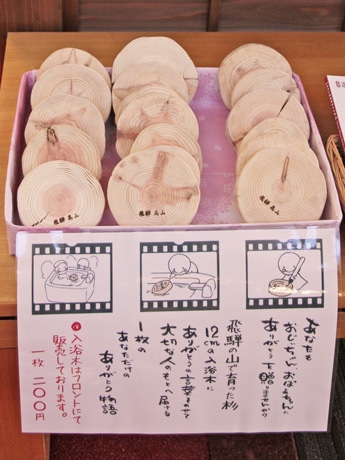 飛騨 高山
飛騨 高山
飛騨 高山
あなたも
おじいちゃん、おばあちゃんに
ありがとうを贈りませんか？
飛騨の山で育った杉
12cmの入浴木に
ありがとうの言葉をのせて
大切な人のもとへ届ける
1枚の
あなただけの
ありがとう物語
入浴木はフロントにて
販売しております。
一枚 二〇〇円